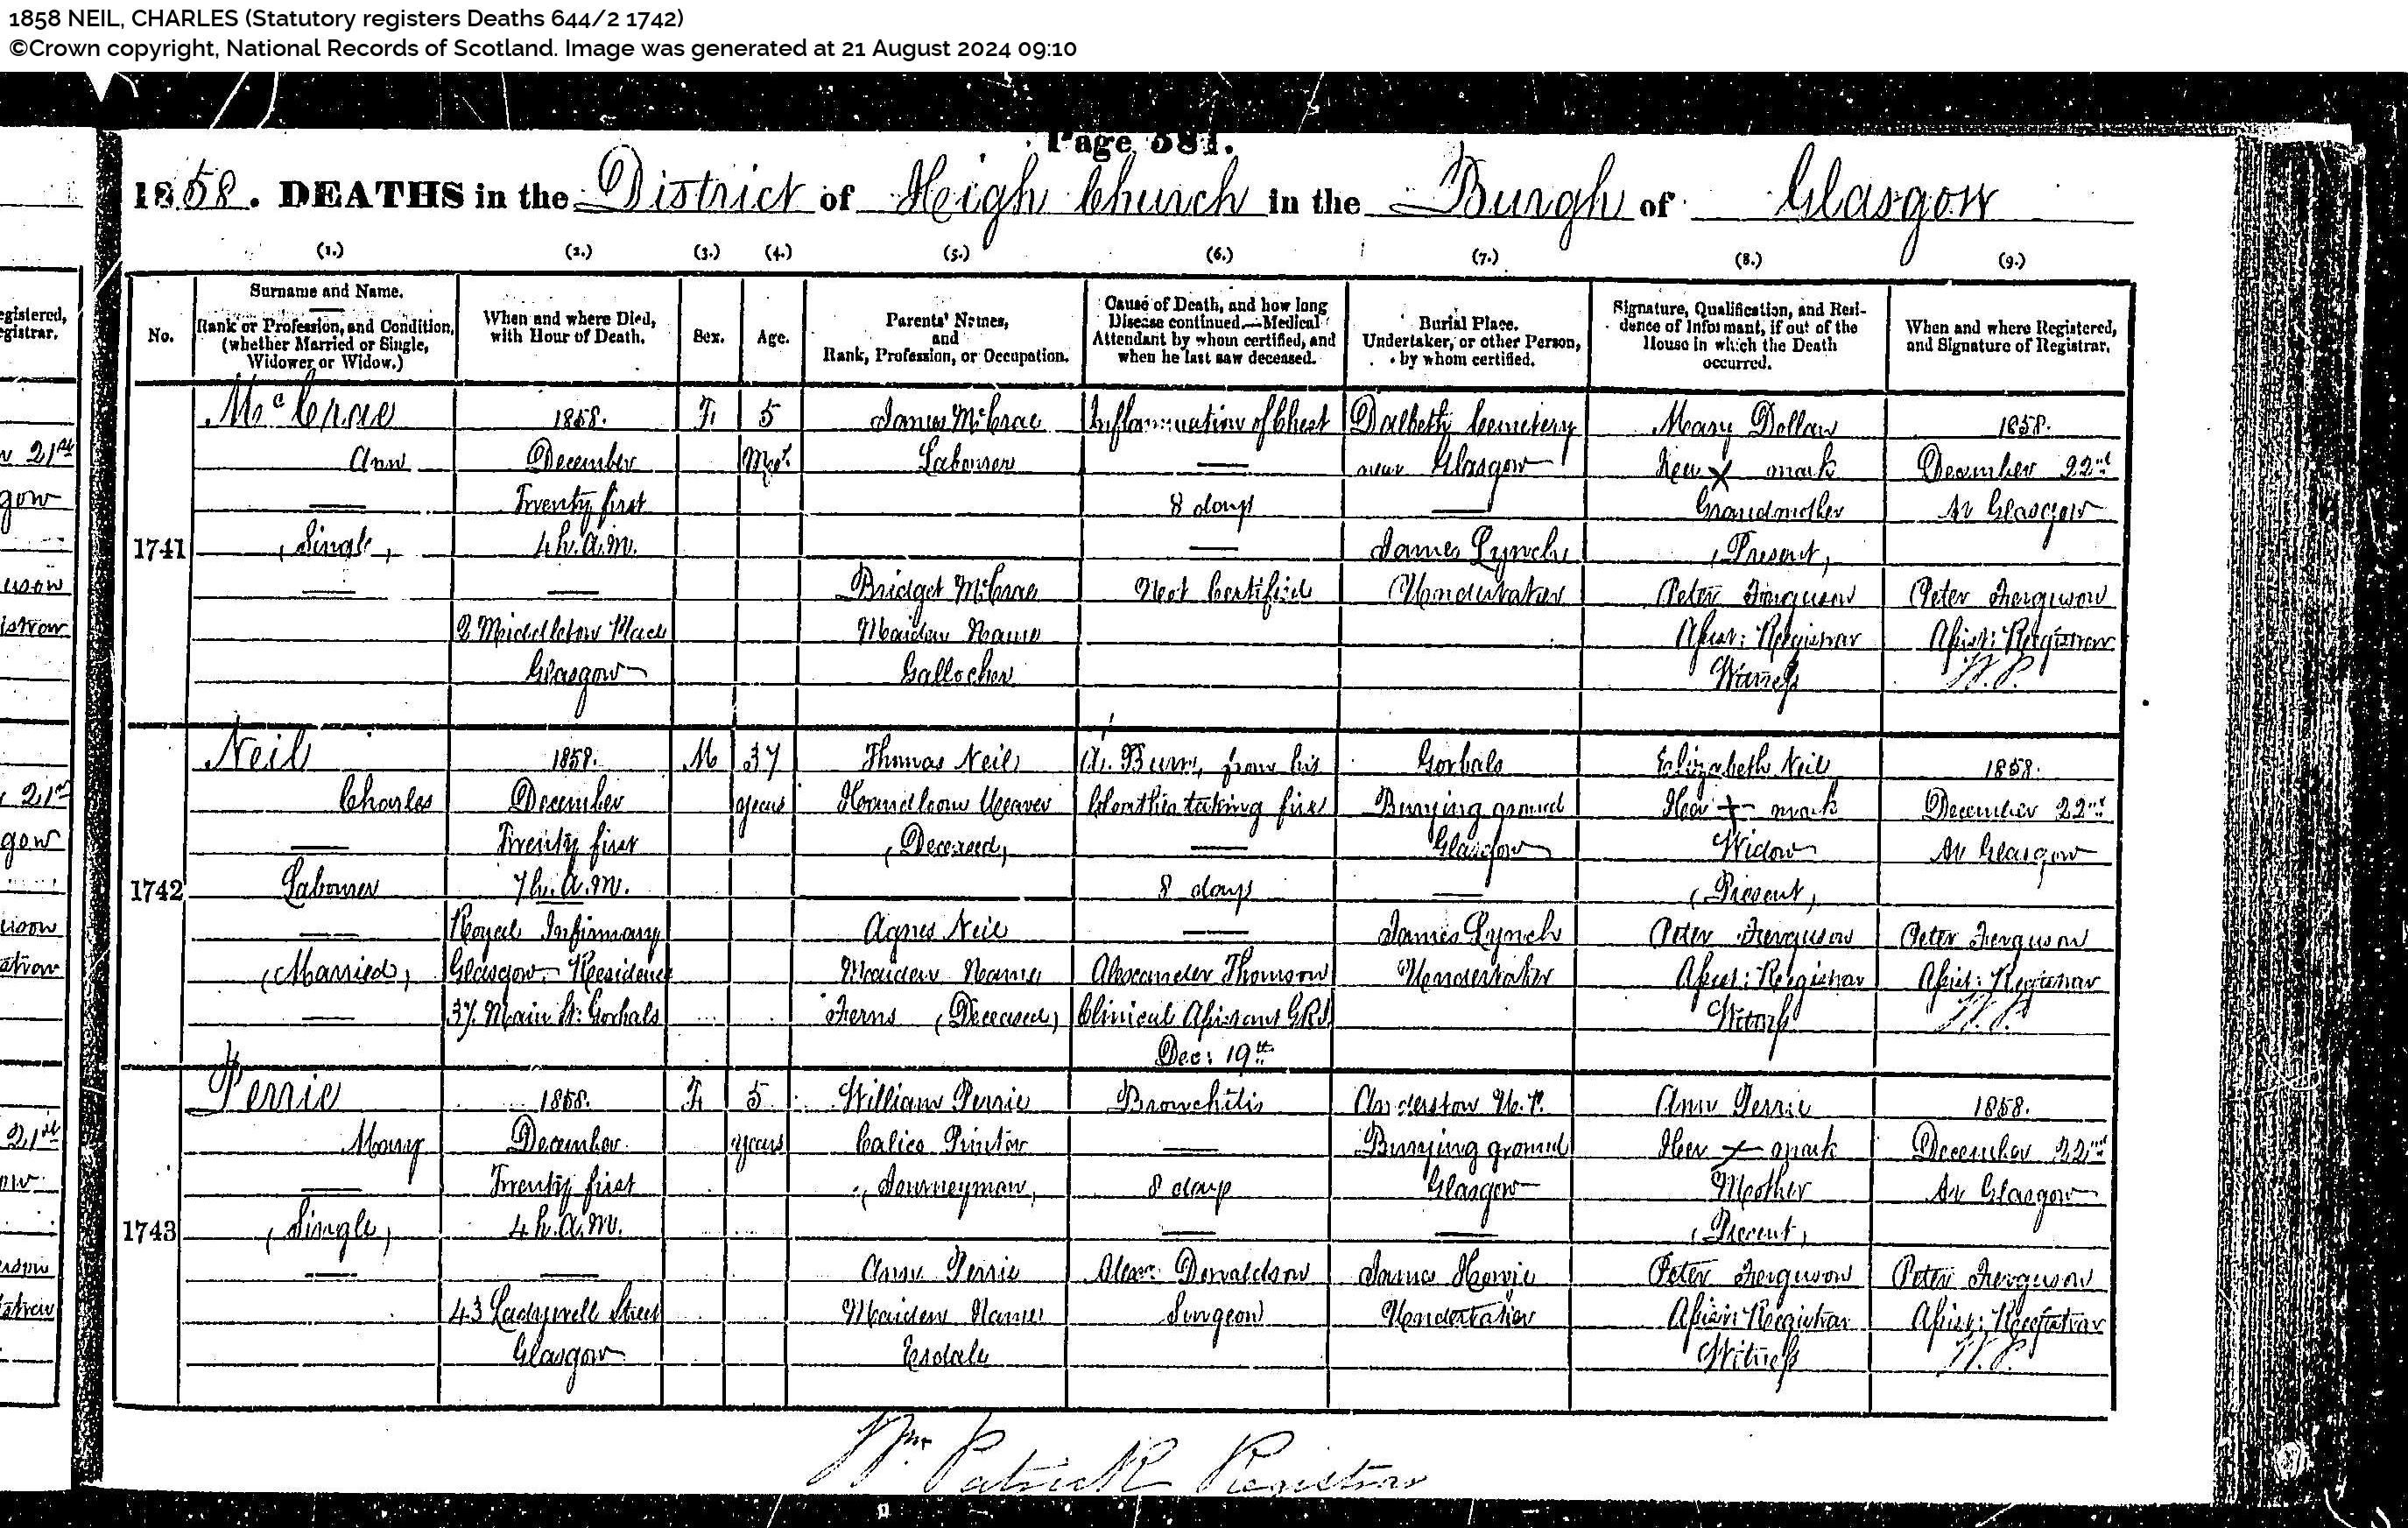 1858 NEIL, CHARLES (Statutory registers Deaths 644/2 1742)
©Crown copyright, National Records of Scotland. Image was generated at 21 August 2024 09:10
Page 381.
1858. DEATHS in the District of High Church in the Burgh of Glasgow
(1.) (2.) (3.) (4.) (5.) (6.) (7.) (8.) (9.)
No.
Surname and Name.
Rank or Profession, and Condition,
(whether Married or Single,
Widower or Widow.)
When and where Died,
with Hour of Death.
Sex.
Age.
Parents' Names,
and
Rank, Profession, or Occupation.
Cause of Death, and how long
Disease continued.—Medical
Attendant by whom certified, and
when he last saw deceased.
Burial Place.
Undertaker, or other Person,
by whom certified.
Signature, Qualification, and Resi-
dence of Informant, if out of the
House in which the Death
occurred.
When and where Registered,
and Signature of Registrar.
1741
McCrae
Ann
(Single)
1858.
December
Twenty first
4h. a.m.
2 Middleton Place
Glasgow
F.
5
Mos.
James McCrae
Labourer
Bridget McCrae
Maiden Name
Gallocher
Inflammation of Chest
8 days
Not Certified
Dalbeth Cemetery
near Glasgow
James Lynch
Undertaker
Mary Dollan
Her x mark
Grandmother
(Present)
Peter Ferguson
Assist: Registrar
Witness
1858.
December 22nd
At Glasgow
Peter Ferguson
Assist: Registrar
W. P.
1742
Neil
Charles
Labourer
(Married)
1858.
December
Twenty first
7h. a.m.
Royal Infirmary
Glasgow Residence
37 Main St: Gorbals
M
37
years
Thomas Neil
Handloom Weaver
(Deceased)
Agnes Neil
Maiden Name
Ferns (Deceased)
A. Burn, from his
Cloathes taking fire
8 days
Alexander Thomson
Clinical Assistant G.R.I.
Dec: 19th
Gorbals
Burying ground
Glasgow
James Lynch
Undertaker
Elizabeth Neil
Her + mark
Widow
(Present)
Peter Ferguson
Assist: Registrar
Witness
1858.
December 22nd
At Glasgow
Peter Ferguson
Assist: Registrar
W. P.
1743
Perrie
Mary
(Single)
1858.
December
Twenty first
4h. a.m.
43 Ladywell Street
Glasgow
F.
5
years
William Perrie
Calico Printer
(Journeyman)
Ann Perrie
Maiden Name
Esdale
Bronchitis
8 days
Alexr. Donaldson
Surgeon
Anderston U.P.
Burying ground
Glasgow
James Howie
Undertaker
Ann Perrie
Her x mark
Mother
(Present)
Peter Ferguson
Assist: Registrar
Witness
1858.
December 22nd
At Glasgow
Peter Ferguson
Assist: Registrar
W. P.
Wm. Patrick Registrar